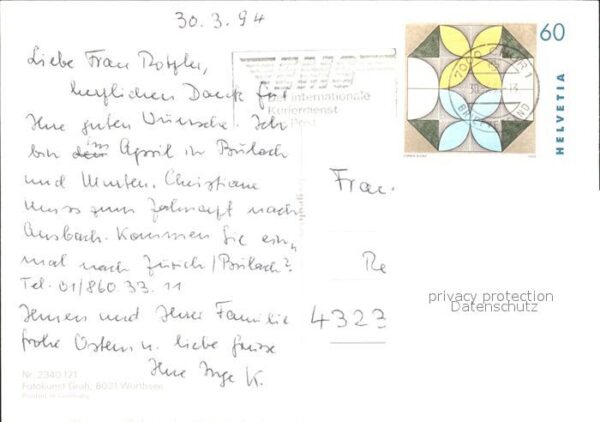 30.3.94
Liebe Frau
herzlichen Dank für
Ihre guten Wünsche. Ich
bin im April in Bülach
und Murten. Christiane
muss zum Zahnarzt nach
Ansbach. Kommen Sie ein-
mal nach Zürich/Bülach?
Tel. 01/860 33 11
Ihnen und Ihrer Familie
frohe Ostern u. liebe Grüsse
Ihre Inge K.
Nr. 2340 121
Fotokunst Groh, 8031 Wörthsee
Printed in Germany
Der internationale
Kurierdienst
Post
60
HELVETIA
7000
Frau
Re
4323
privacy protection
Datenschutz